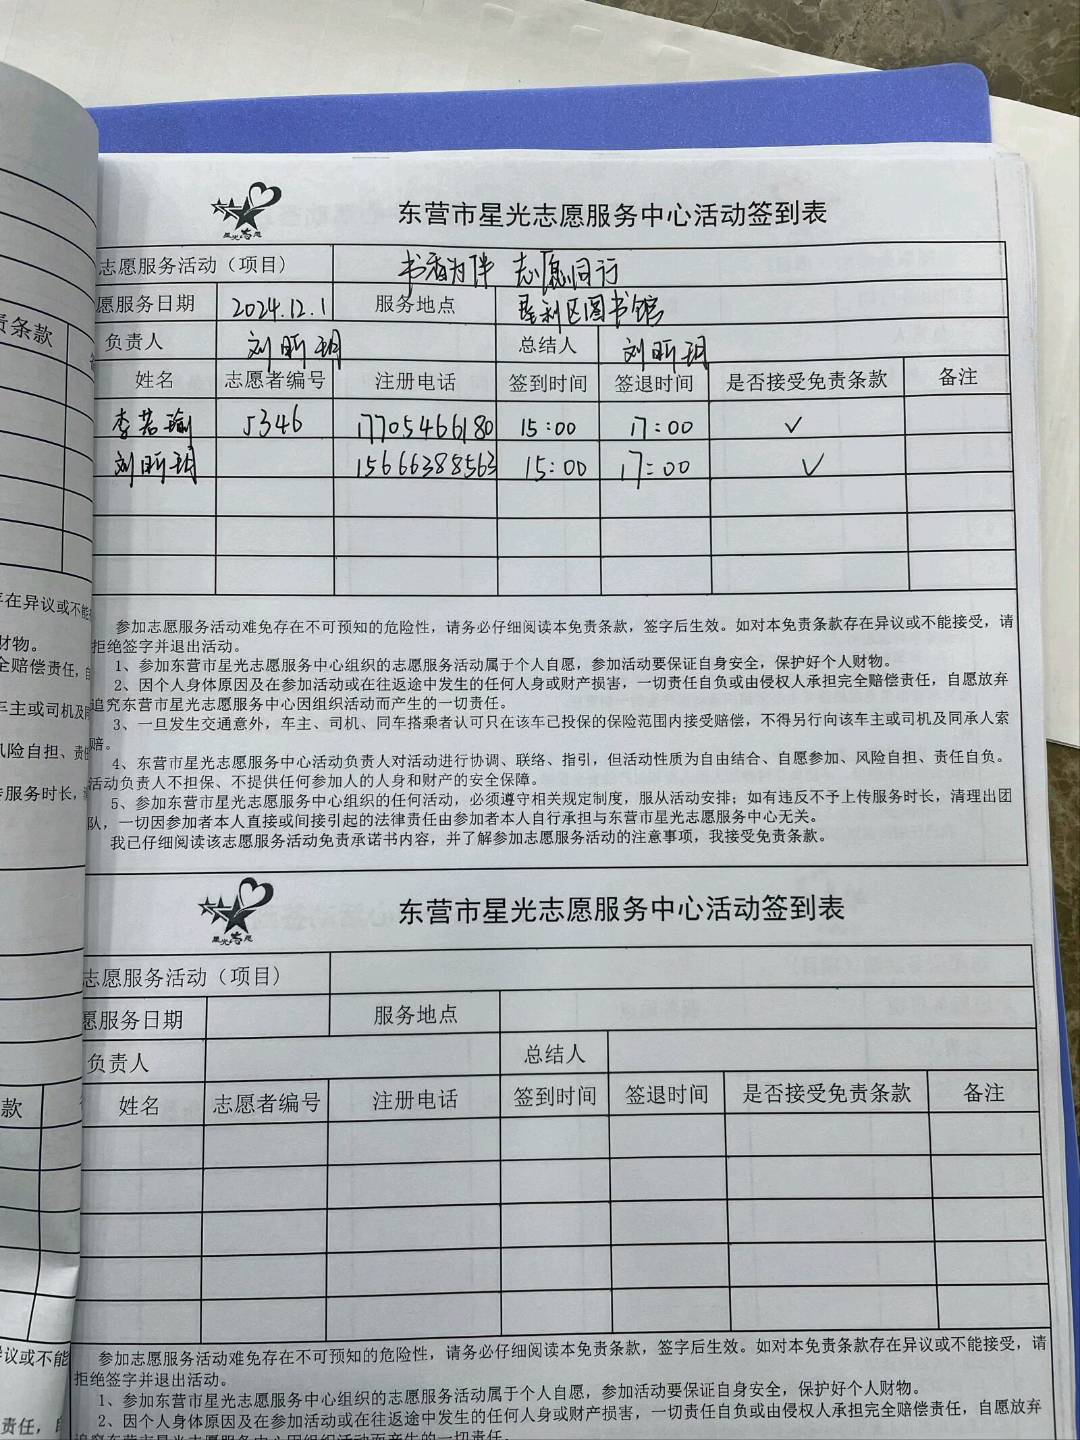 星光志愿
东营市星光志愿服务中心活动签到表
志愿服务活动（项目） 书香为伴 志愿同行
愿服务日期 2024.12.1 服务地点 垦利区图书馆
负责人 刘昕玥 总结人 刘昕玥
姓名 志愿者编号 注册电话 签到时间 签退时间 是否接受免责条款 备注
李若瑜 5346 17705466180 15:00 17:00 ✓
刘昕玥 15666388563 15:00 17:00 ✓
参加志愿服务活动难免存在不可预知的危险性，请务必仔细阅读本免责条款，签字后生效。如对本免责条款存在异议或不能接受，请
拒绝签字并退出活动。
1、参加东营市星光志愿服务中心组织的志愿服务活动属于个人自愿，参加活动要保证自身安全，保护好个人财物。
2、因个人身体原因及在参加活动或在往返途中发生的任何人身或财产损害，一切责任自负或由侵权人承担完全赔偿责任，自愿放弃
追究东营市星光志愿服务中心因组织活动而产生的一切责任。
3、一旦发生交通意外，车主、司机、同车搭乘者认可只在该车已投保的保险范围内接受赔偿，不得另行向该车主或司机及同承人索
赔。
4、东营市星光志愿服务中心活动负责人对活动进行协调、联络、指引，但活动性质为自由结合、自愿参加、风险自担、责任自负。
活动负责人不担保、不提供任何参加人的人身和财产的安全保障。
5、参加东营市星光志愿服务中心组织的任何活动，必须遵守相关规定制度，服从活动安排；如有违反不予上传服务时长，清理出团
队，一切因参加者本人直接或间接引起的法律责任由参加者本人自行承担与东营市星光志愿服务中心无关。
我已仔细阅读该志愿服务活动免责承诺书内容，并了解参加志愿服务活动的注意事项，我接受免责条款。
星光志愿
东营市星光志愿服务中心活动签到表
志愿服务活动（项目）
愿服务日期 服务地点
负责人 总结人
姓名 志愿者编号 注册电话 签到时间 签退时间 是否接受免责条款 备注
参加志愿服务活动难免存在不可预知的危险性，请务必仔细阅读本免责条款，签字后生效。如对本免责条款存在异议或不能接受，请
拒绝签字并退出活动。
1、参加东营市星光志愿服务中心组织的志愿服务活动属于个人自愿，参加活动要保证自身安全，保护好个人财物。
2、因个人身体原因及在参加活动或在往返途中发生的任何人身或财产损害，一切责任自负或由侵权人承担完全赔偿责任，自愿放弃
追究东营市星光志愿服务中心因组织活动而产生的一切责任。
责条款
存在异议或不能
财物。
全赔偿责任，自
车主或司机及同
风险自担、责任
传服务时长，
款
异议或不能
责任，自